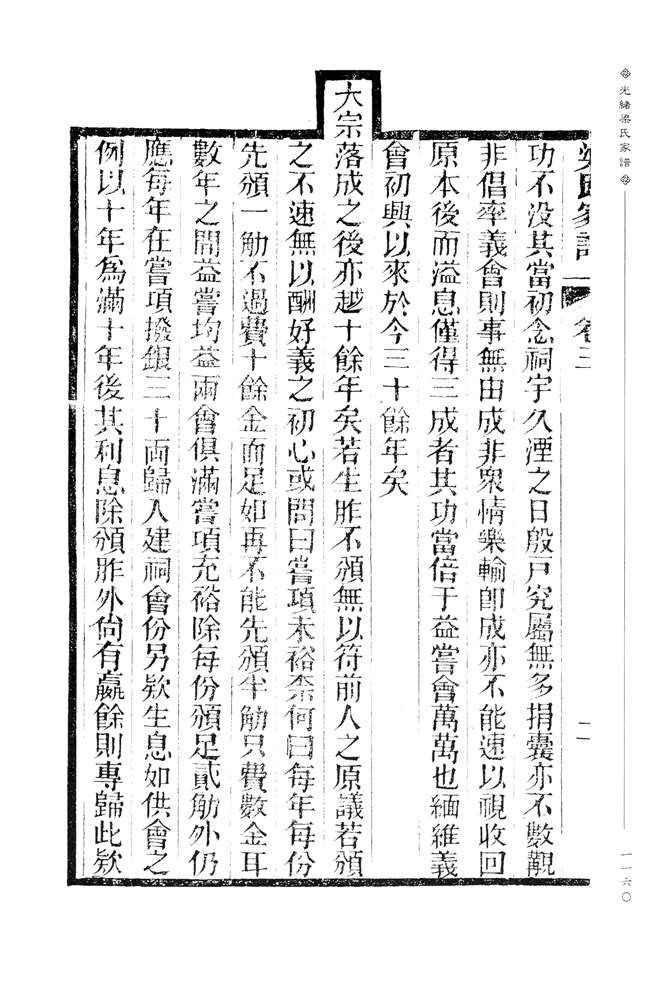 光緒梁氏家譜
一一六〇
梁氏家譜 卷三
二
功不没其當初念祠宇久湮之日殷戸究屬無多捐囊亦不數觀
非倡率義會則事無由成非眾情樂輸卽成亦不能速以視收回
原本後而溢息僅得三成者其功當倍于益嘗會萬萬也緬維義
會初興以來於今三十餘年矣
大宗落成之後亦越十餘年矣若生胙不頒無以符前人之原議若頒
之不速無以酬好義之初心或問曰嘗項未裕柰何曰每年每份
先頒一觔不過費十餘金而足如再不能先頒半觔只費數金耳
數年之間益嘗均益兩會俱滿嘗項充裕除每份頒足貳觔外仍
應每年在嘗項撥銀三十両歸入建祠會份另欵生息如供會之
例以十年爲滿十年後其利息除頒胙外尙有贏餘則專歸此欵